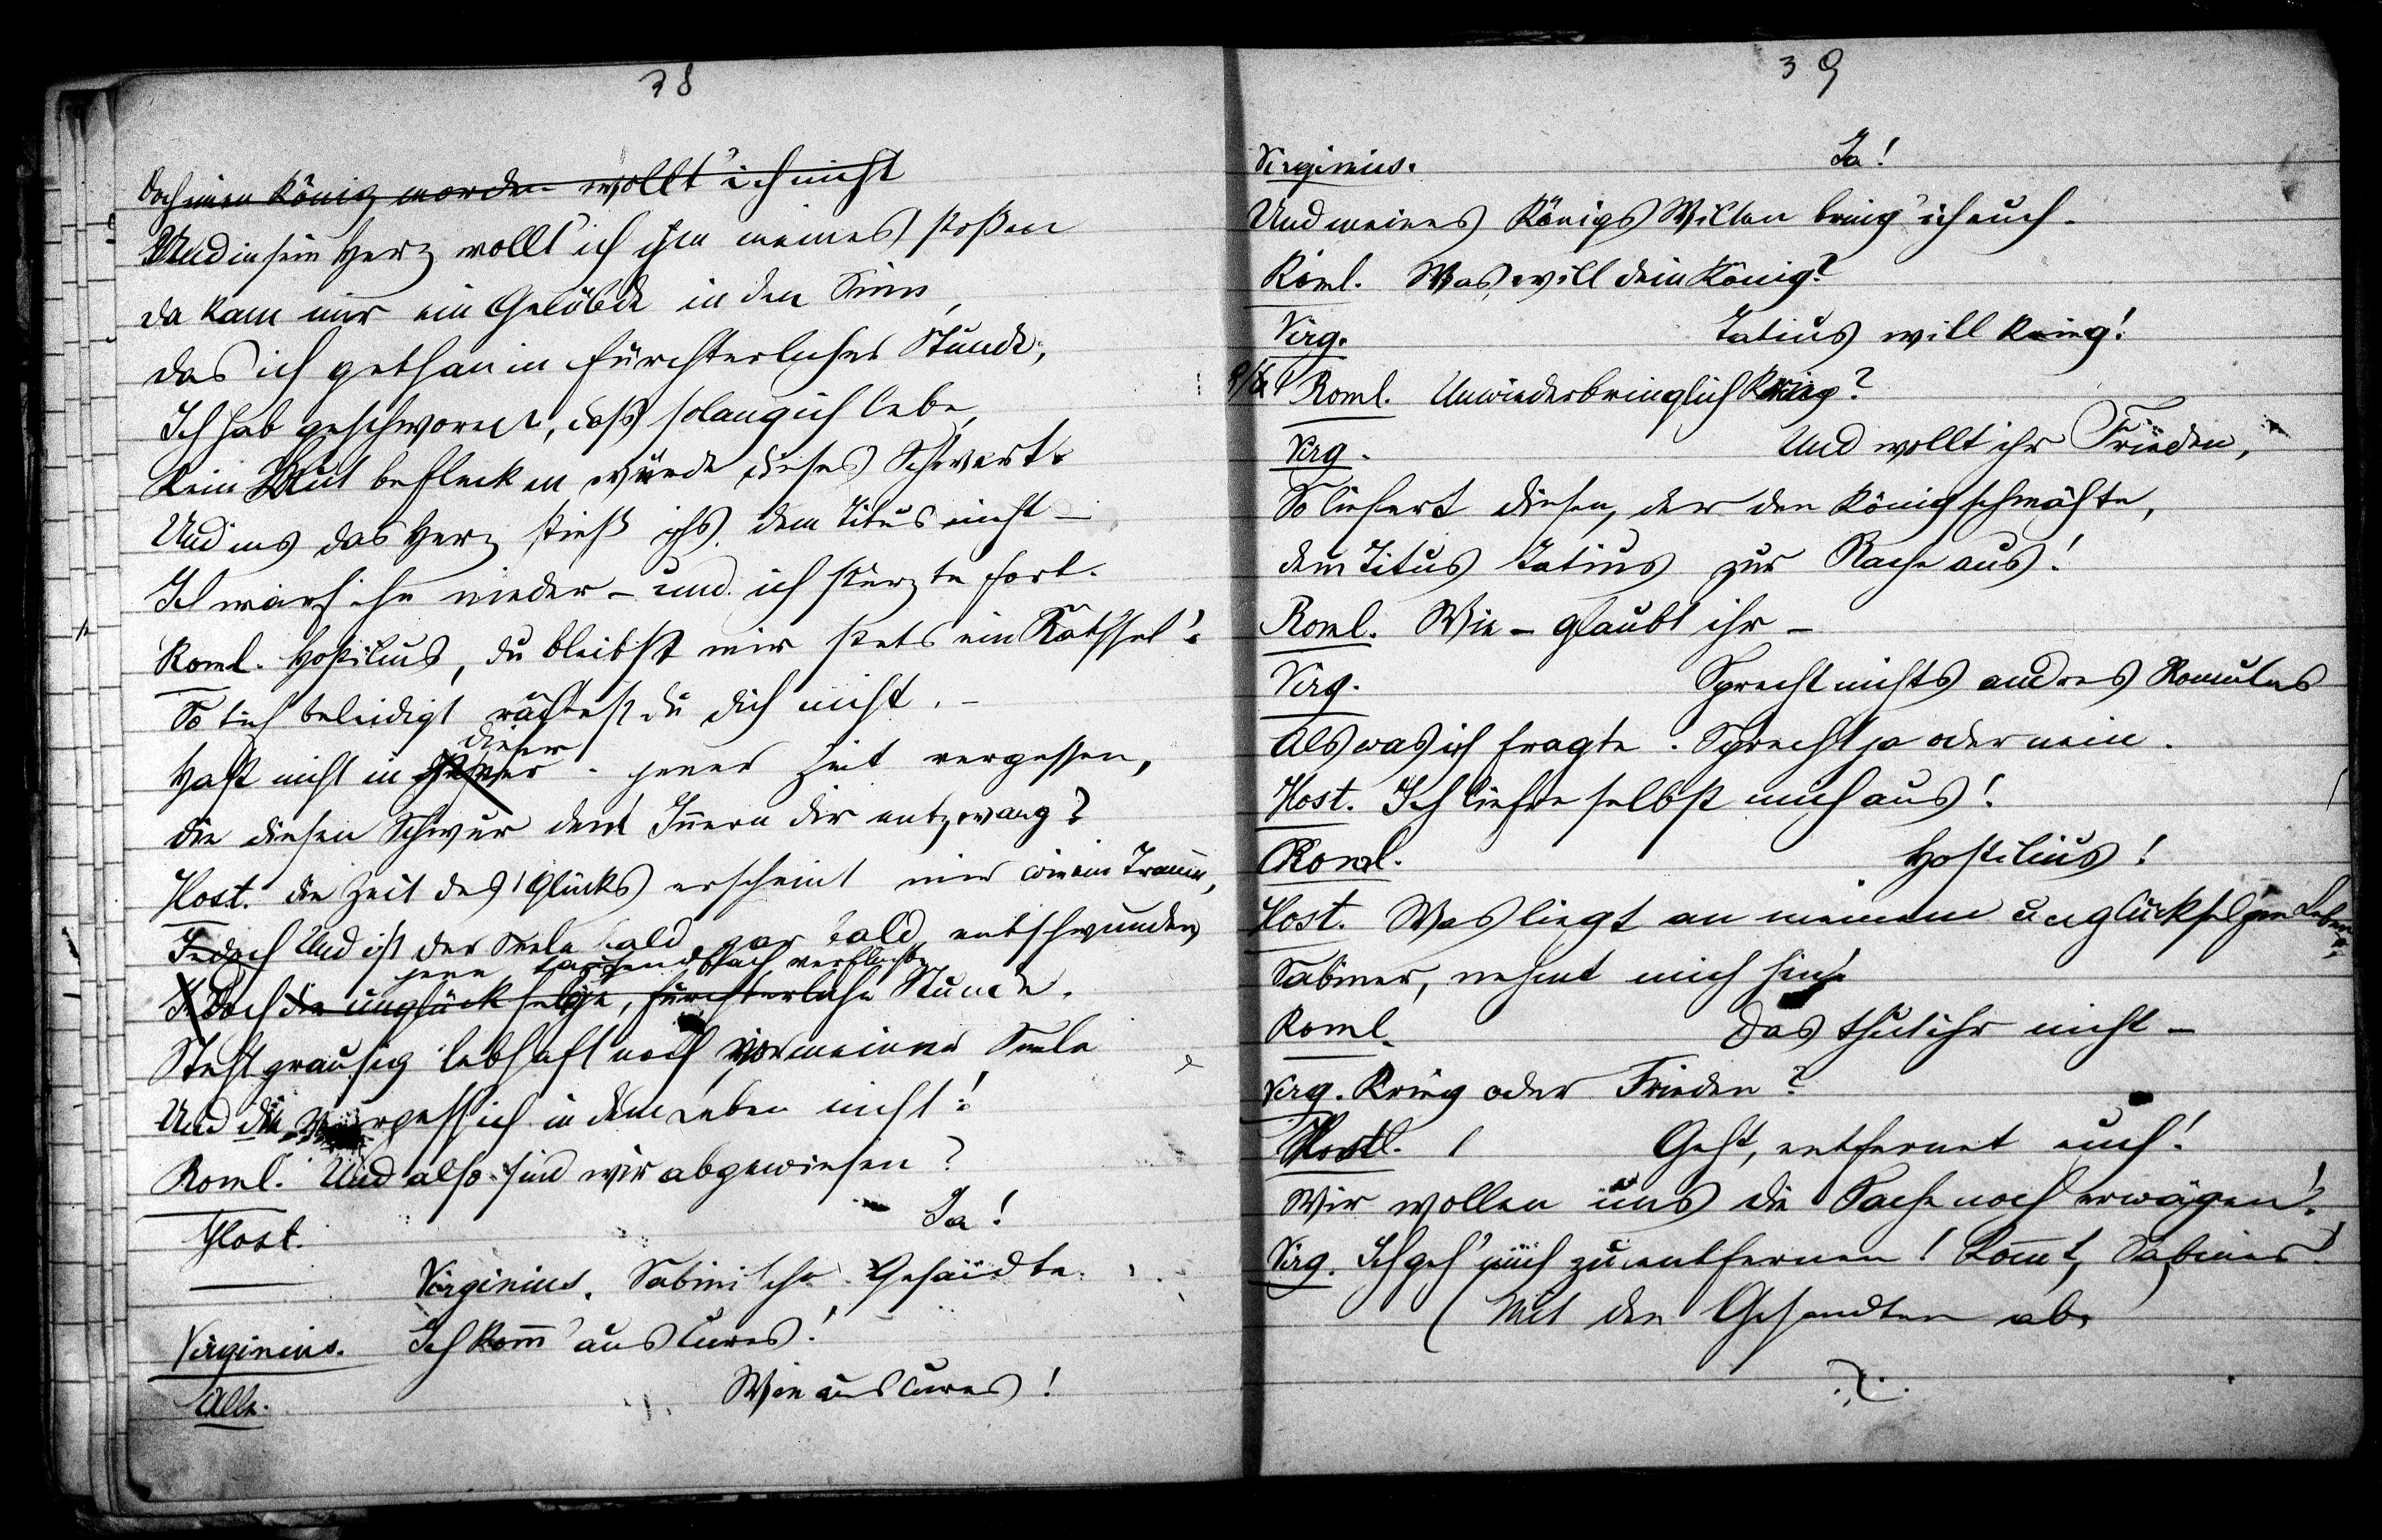 38
Doch einen König morden wollt' ich nicht
Und in sein Herz wollt ich ihm meines stoßen
Da kam mir ein Gelübde in den Sinn,
Das ich gethan in fürchterlicher Stunde,
Ich hab geschworen, daß solang ich lebe,
Kein Blut beflecken würde dieses Schwert.
Und ins das Herz stieß ichs dem Titus nicht –
Ich warf ihn nieder – und ich stürzte fort.
Roml. Hostilius, du bleibst mir stets ein Räthsel!
So tief beleidigt rächtest du dich nicht. –
dieser
Hast nicht in jener Zeit vergessen,
Die diesen Schwur dem Innern dir entzwang?
Host. Die Zeit des Glücks erscheint mir wie ein Traum,
Jedoch Und ist der Seele bald, gar bald entschwunden
jene tausendfach verfluchte
Jedoch die unglückselige, fürchterliche Stunde.
Steht grausig lebhaft noch vor meiner Seele
Und die vergeß ich in dem Leben nicht!
Roml. Und also sind wir abgewiesen?
Host. Ja!
Virginius. Sabinische Gesandte.
Virginius. Ich komm' aus Cures!
Alle. Wie aus Cures!
39
Virginius. Ja!
Und meines Königs Willen bring' ich euch.
Roml. Was will dein König?
Virg. Tatius will Krieg!
Roml. Unwiederbringlich Krieg?
Virg. Und wollt ihr Frieden,
So liefert diesen, der den König schmähte,
Dem Titus Tatius zur Rache aus!
Roml. Wie – glaubt ihr –
Virg. Sprecht nichts andres Romulus
Als was ich fragte. Sprecht ja oder nein.
Host. Ich liefre selbst mich aus!
Roml. Hostilius!
Host. Was liegt an meinem unglückselgen Leben
Sabiner, nehmt mich hin!
Roml. Das thut ihr nicht –
Virg. Krieg oder Frieden?
Hostl. Geht, entfernet euch!
Wir wollen uns die Sache noch erwägen!
Virg. Ich geh' mich zu entfernen! Komt, Sabiner!
(Mit den Gesandten ab.